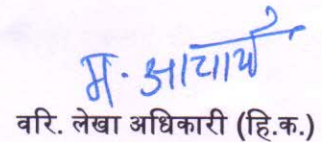 म. आचार्य
वरि. लेखा अधिकारी (हि.क.)